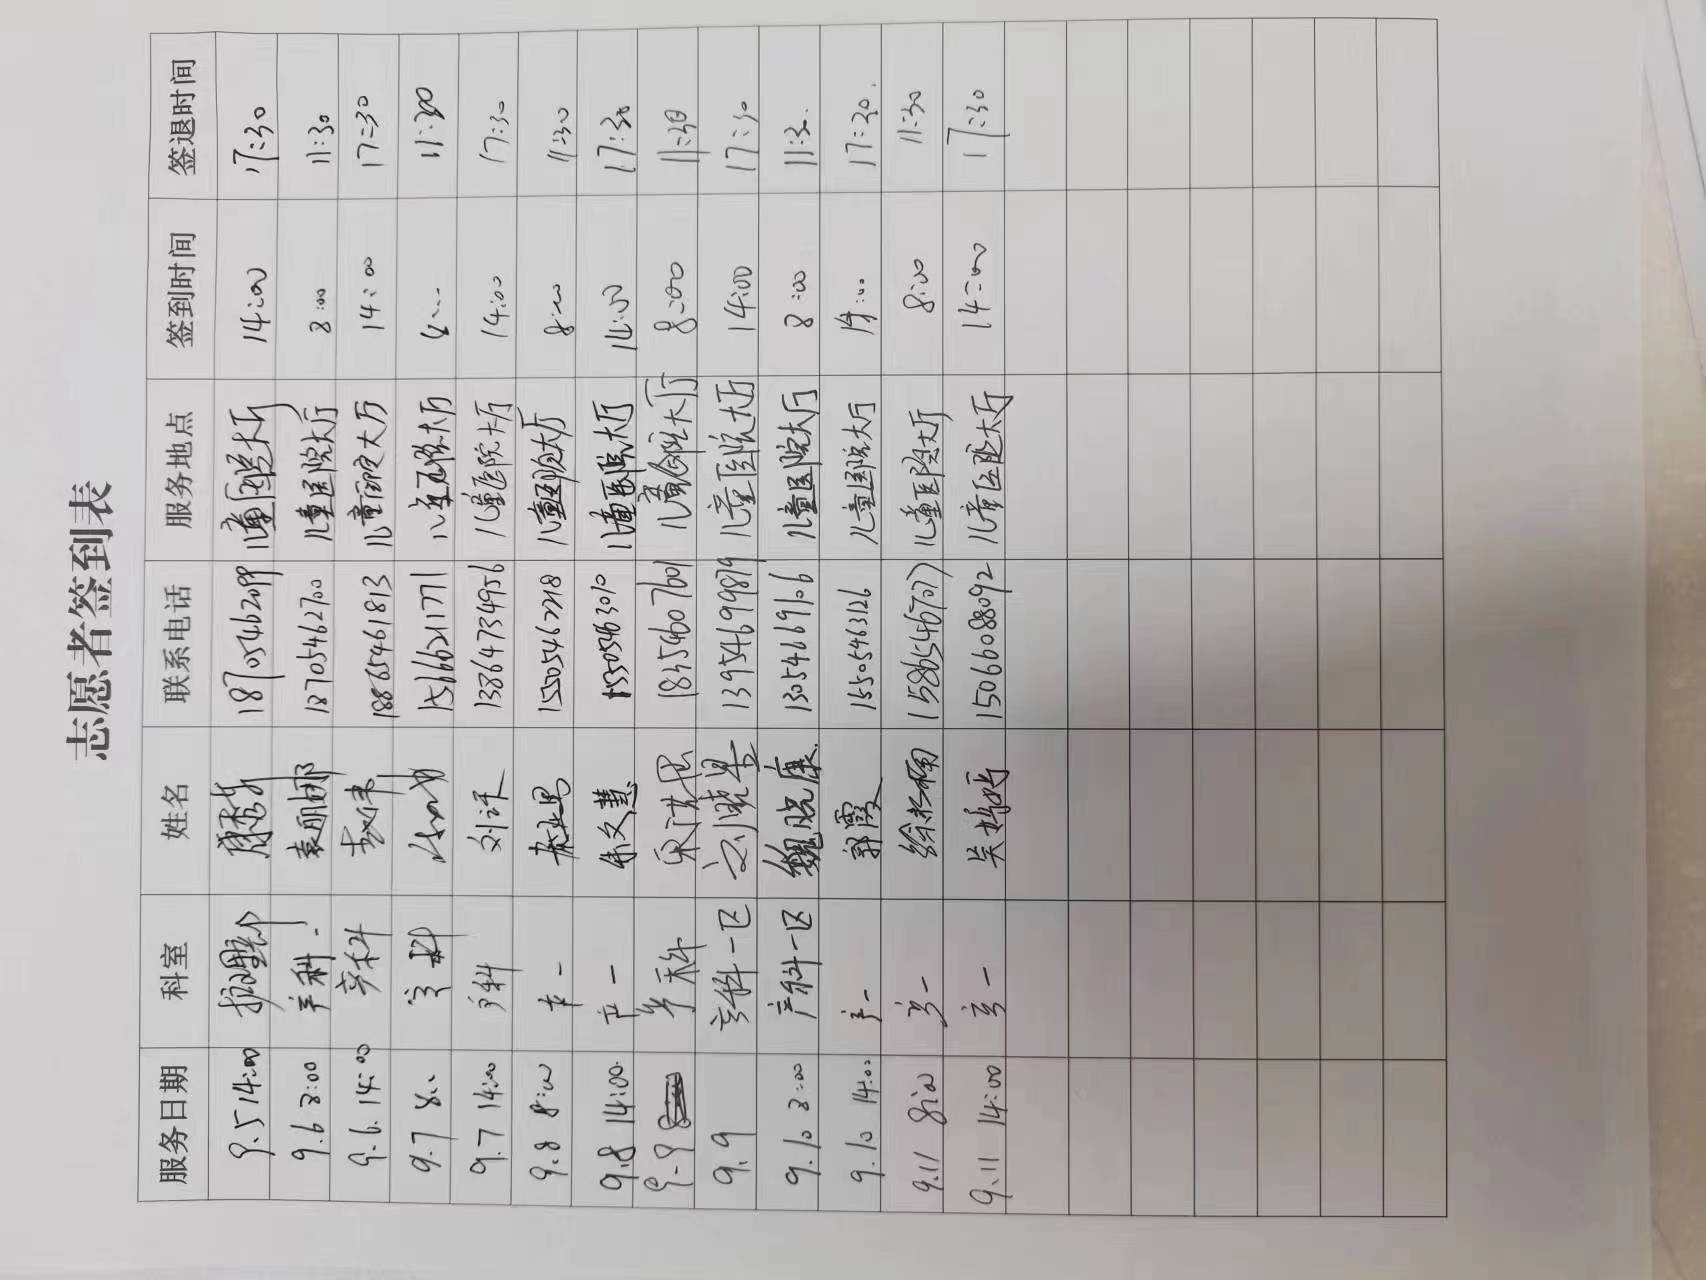 志愿者签到表
服务日期 科室 姓名 联系电话 服务地点 签到时间 签退时间
9.5 14:00 护理部 18705462099 儿童医院大厅 14:00 17:30
9.6 8:00 产科 袁丽娜 18705462700 儿童医院大厅 8:00 11:30
9.6. 14:00 产科 18865461813 儿童医院大厅 14:00 17:30
9.7 产科 15666211771 儿童医院大厅 11:300
9.7 14:00 产科 刘评 13864734956 儿童医院大厅 14:00 17:30
9.8 8:00 产一 15505462218 儿童医院大厅 8:00 11:30
9.8 14:00 产一 朱文慧 儿童医院大厅 14:00 17:30
9.9 产科 18354607601 儿童医院大厅 8:00 11:30
9.9 产科一区 刘晓星 13954699879 儿童医院大厅 14:00 17:30
9.10 8:00 产科一区 魏晓康 13054691616 儿童医院大厅 8:00 11:30
9.10 14:00 产一 郭霞 15505463126 儿童医院大厅 14:00 17:30.
9.11 8:00 产一 15865467077 儿童医院大厅 8:00 11:30
9.11 14:00 产一 吴婷婷 15066088092 儿童医院大厅 14:00 17:30